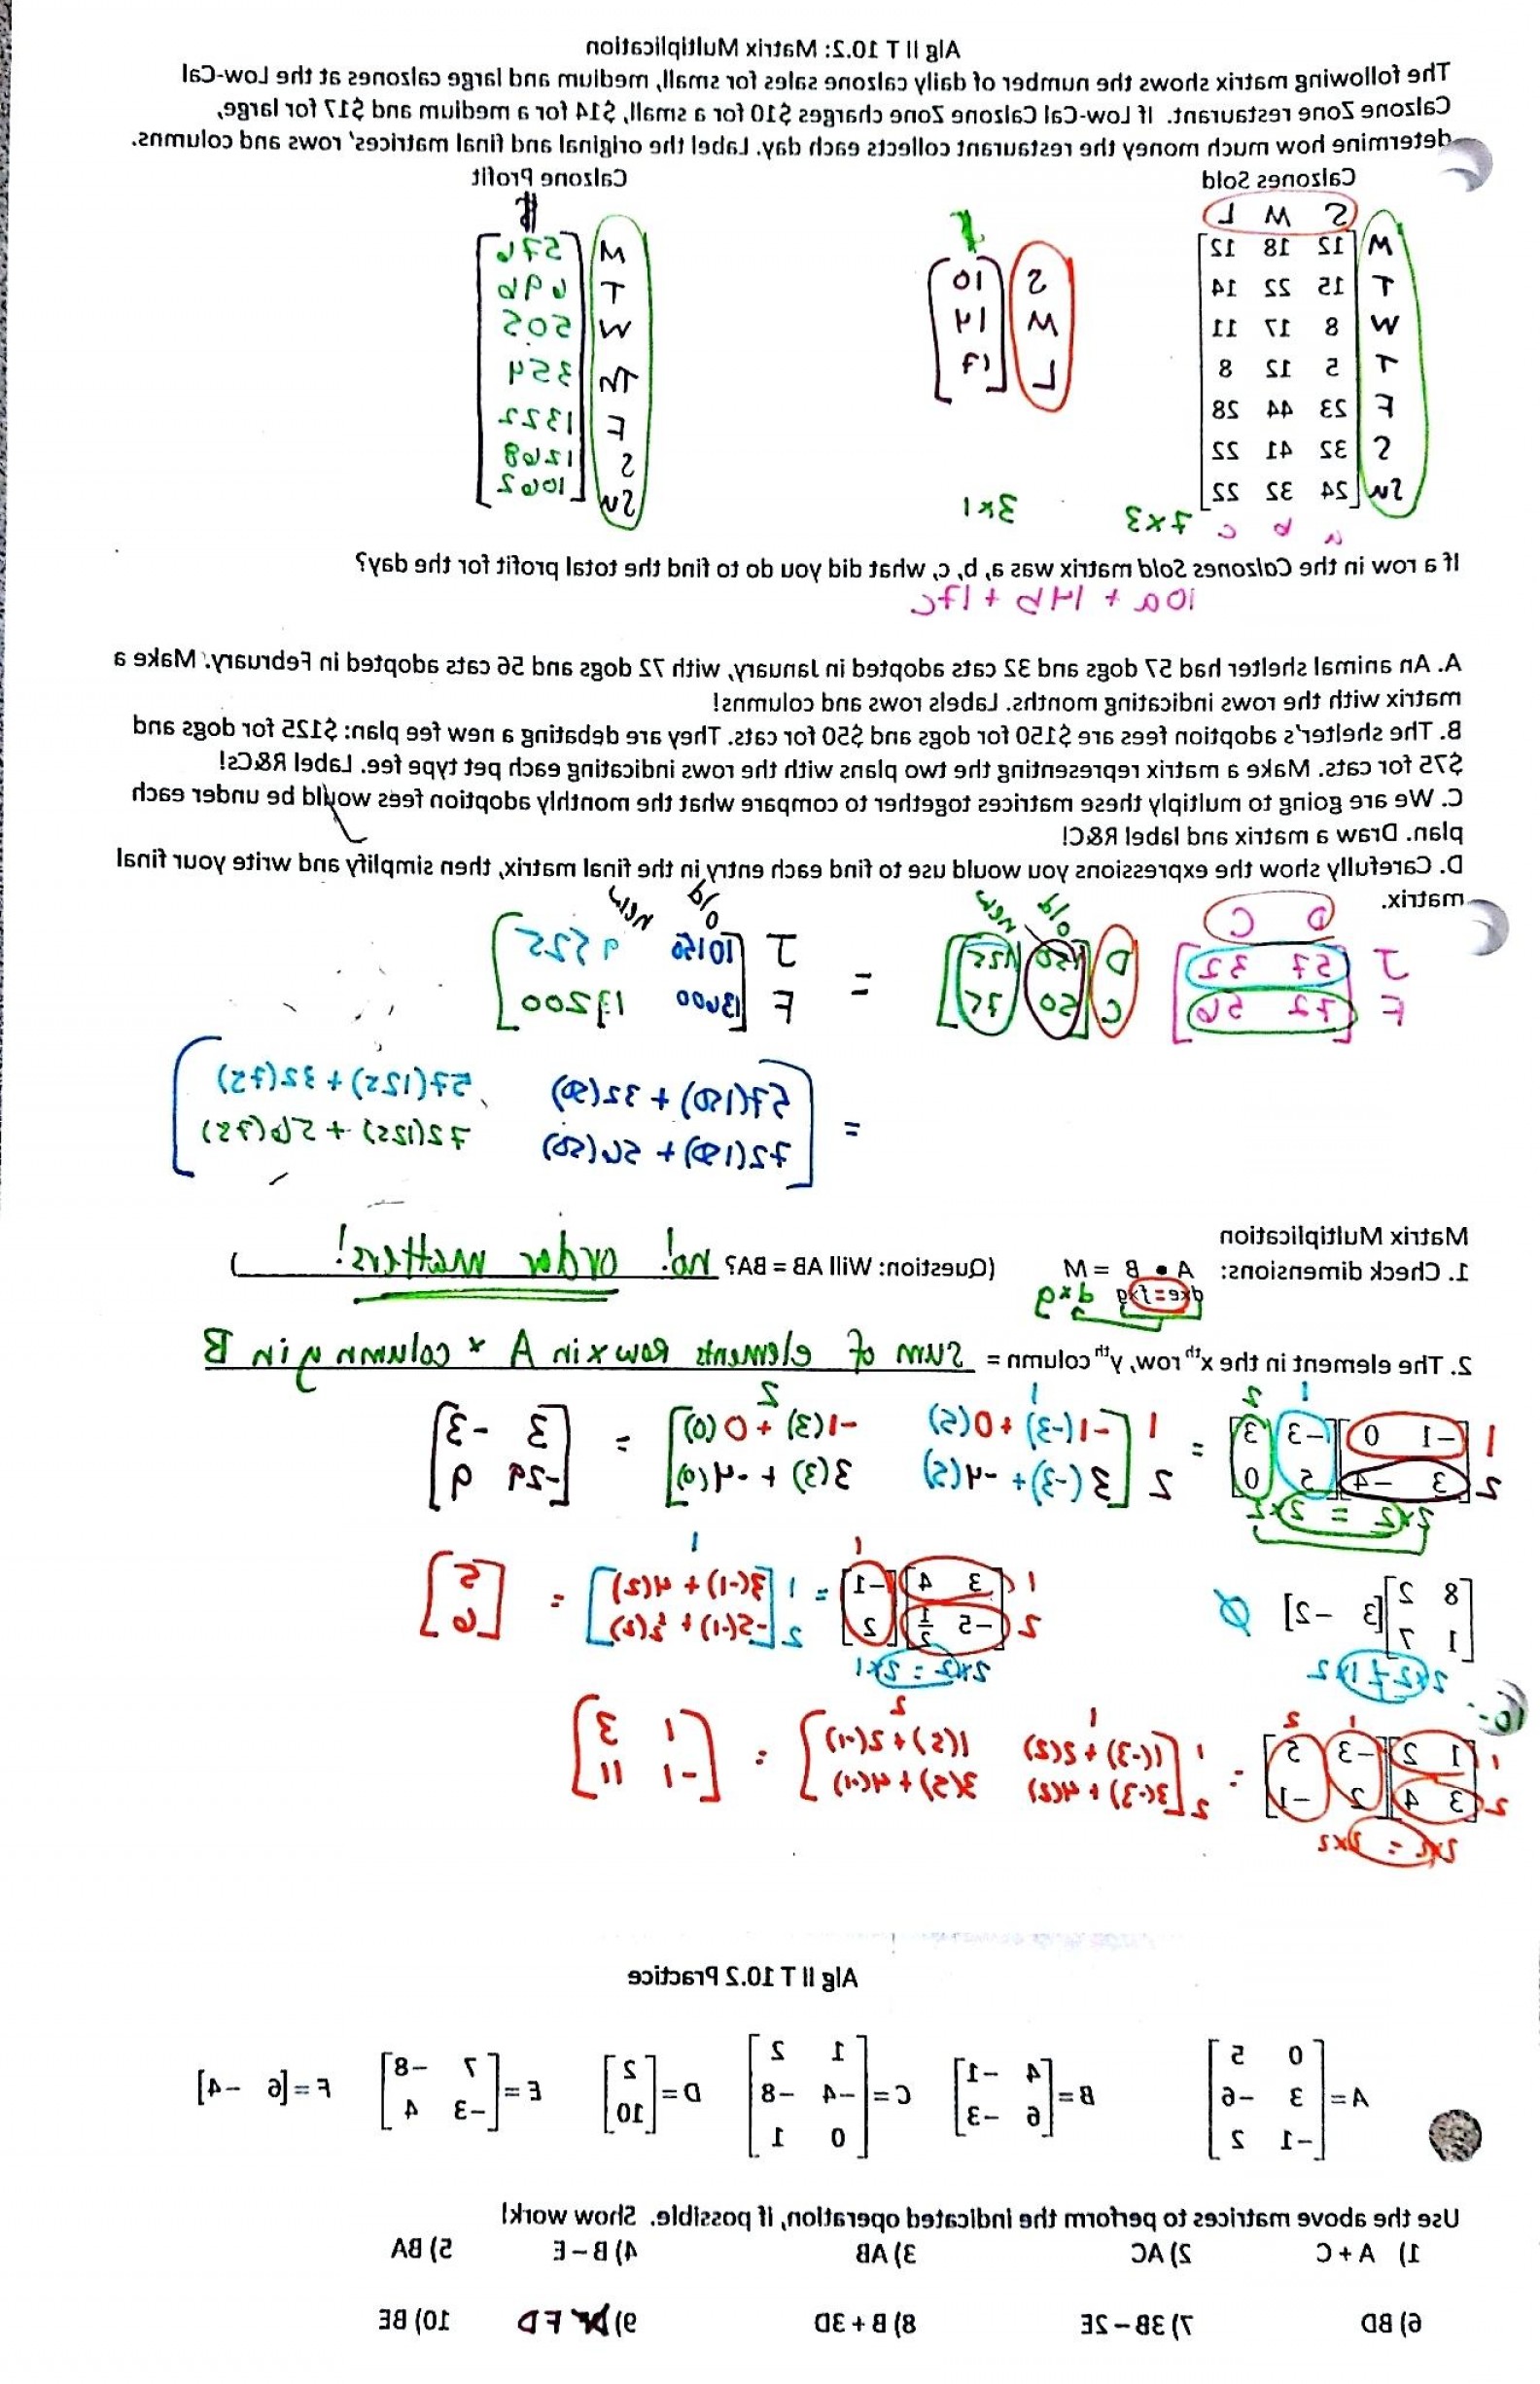 Alg II T 10.2: Matrix Multiplication
The following matrix shows the number of daily calzone sales for small, medium and large calzones at the Low-Cal
Calzone Zone restaurant. If Low-Cal Calzone Zone charges $10 for a small, $14 for a medium and $17 for large,
determine how much money the restaurant collects each day. Label the original and final matrices' rows and columns.
Calzones Sold Calzone Profit
S M L $
M 12 18 12 S 10 M 576
T 15 22 14 M 14 T 696
W 8 17 11 L 17 W 505
T 5 12 8 Th 354
F 23 44 28 F 1322
S 32 41 22 S 1268
Su 24 32 22 Su 1062
a b c 7x3 3x1
If a row in the Calzones Sold matrix was a, b, c, what did you do to find the total profit for the day?
10a + 14b + 17c
A. An animal shelter had 57 dogs and 32 cats adopted in January, with 72 dogs and 56 cats adopted in February. Make a
matrix with the rows indicating months. Labels rows and columns!
B. The shelter's adoption fees are $150 for dogs and $50 for cats. They are debating a new fee plan: $125 for dogs and
$75 for cats. Make a matrix representing the two plans with the rows indicating each pet type fee. Label R&Cs!
C. We are going to multiply these matrices together to compare what the monthly adoption fees would be under each
plan. Draw a matrix and label R&C!
D. Carefully show the expressions you would use to find each entry in the final matrix, then simplify and write your final
matrix.
D C old new old new
J 57 32 D 150 125 = J 10150 9525
F 72 56 C 50 75 F 13600 13200
= 57(150) + 32(50) 57(125) + 32(75)
72(150) + 56(50) 72(125) + 56(75)
Matrix Multiplication
1. Check dimensions: A • B = M (Question: Will AB = BA? no! order matters! )
dxe=fxg dxg
2. The element in the xth row, yth column = sum of elements row x in A * column y in B
1 2 1 2
1 -1 0 -3 3 = 1 -1(-3) + 0(5) -1(3) + 0(0) = 3 -3
2 3 -4 5 0 2 3(-3) + -4(5) 3(3) + -4(0) -29 9
2x2 = 2x2
8 2 [3 -2] Ø 1 3 4 -1 = 1 3(-1) + 4(2) = 5
1 7 2 -5 1/2 2 2 -5(-1) + ½(2) 6
2x2 ≠ 1x2 2x2 = 2x1
1 2 1 2
1 1 2 -3 5 = 1 1(-3) + 2(2) 1(5) + 2(-1) = 1 3
2 3 4 2 -1 2 3(-3) + 4(2) 3(5) + 4(-1) -1 11
2x2 = 2x2
Alg II T 10.2 Practice
A = [0 5 3 -6 -1 2] B = [4 -1 6 -3] C = [1 2 -4 -8 0 1] D = [2 10] E = [7 -8 -3 4] F = [6 -4]
Use the above matrices to perform the indicated operation, if possible. Show work!
1) A + C 2) AC 3) AB 4) B – E 5) BA
6) BD 7) 3B – 2E 8) B + 3D 9) FD 10) BE